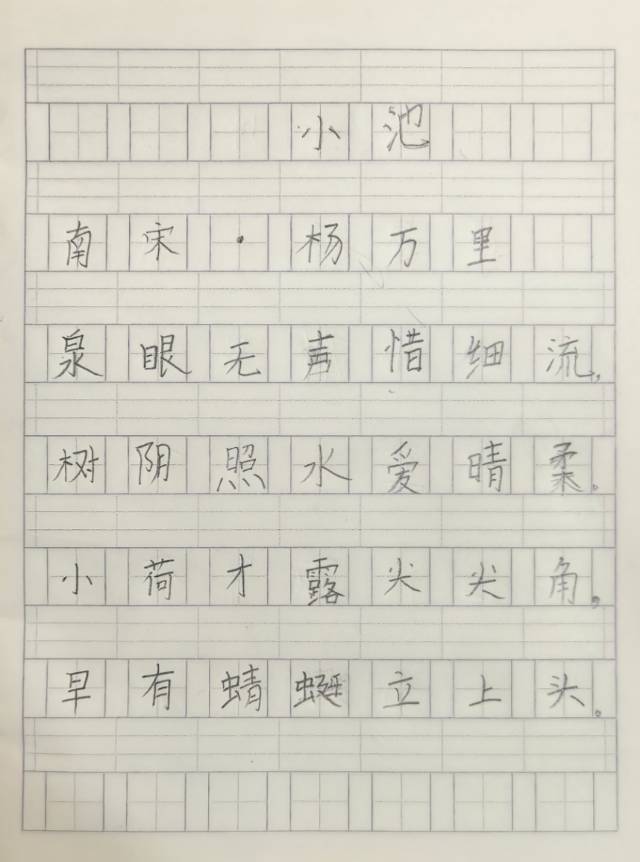 小池
南宋·杨万里
泉眼无声惜细流,
树阴照水爱晴柔。
小荷才露尖尖角,
早有蜻蜓立上头。